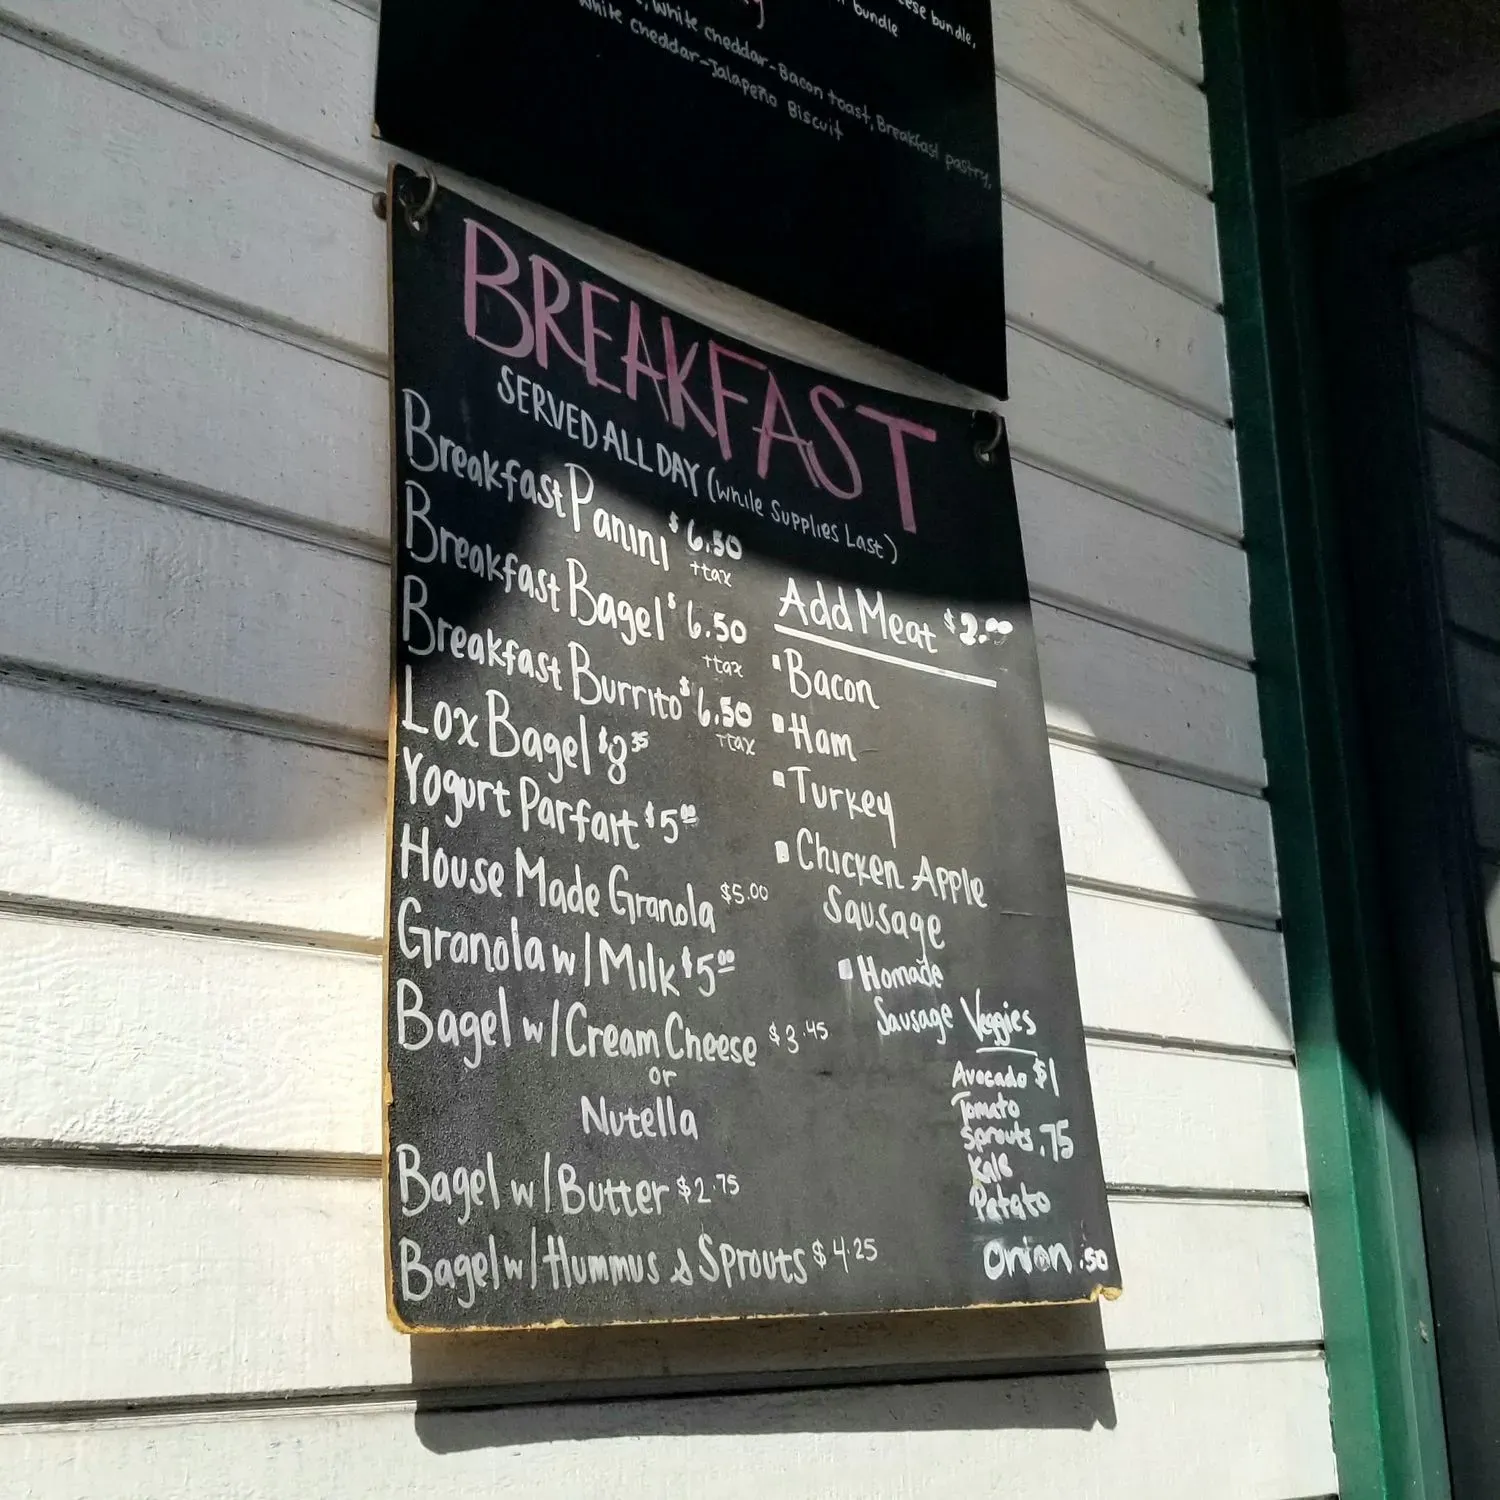 ese bundle,
bundle
White cheddar-Bacon toast, Breakfast pastry,
White cheddar-Jalapeño Biscuit
BREAKFAST
SERVED ALL DAY (While Supplies Last)
Breakfast Panini $6.50
+tax
Breakfast Bagel $6.50
+tax
Breakfast Burrito $6.50
+tax
Lox Bagel $8.35
Yogurt Parfait $5.00
House Made Granola $5.00
Granola w/Milk $5.00
Bagel w/Cream Cheese $3.45
or
Nutella
Bagel w/Butter $2.75
Bagel w/Hummus & Sprouts $4.25
Add Meat $2.00
Bacon
Ham
Turkey
Chicken Apple
Sausage
Homade
Sausage
Veggies
Avocado $1
Tomato
Sprouts .75
Kale
Potato
Onion .50